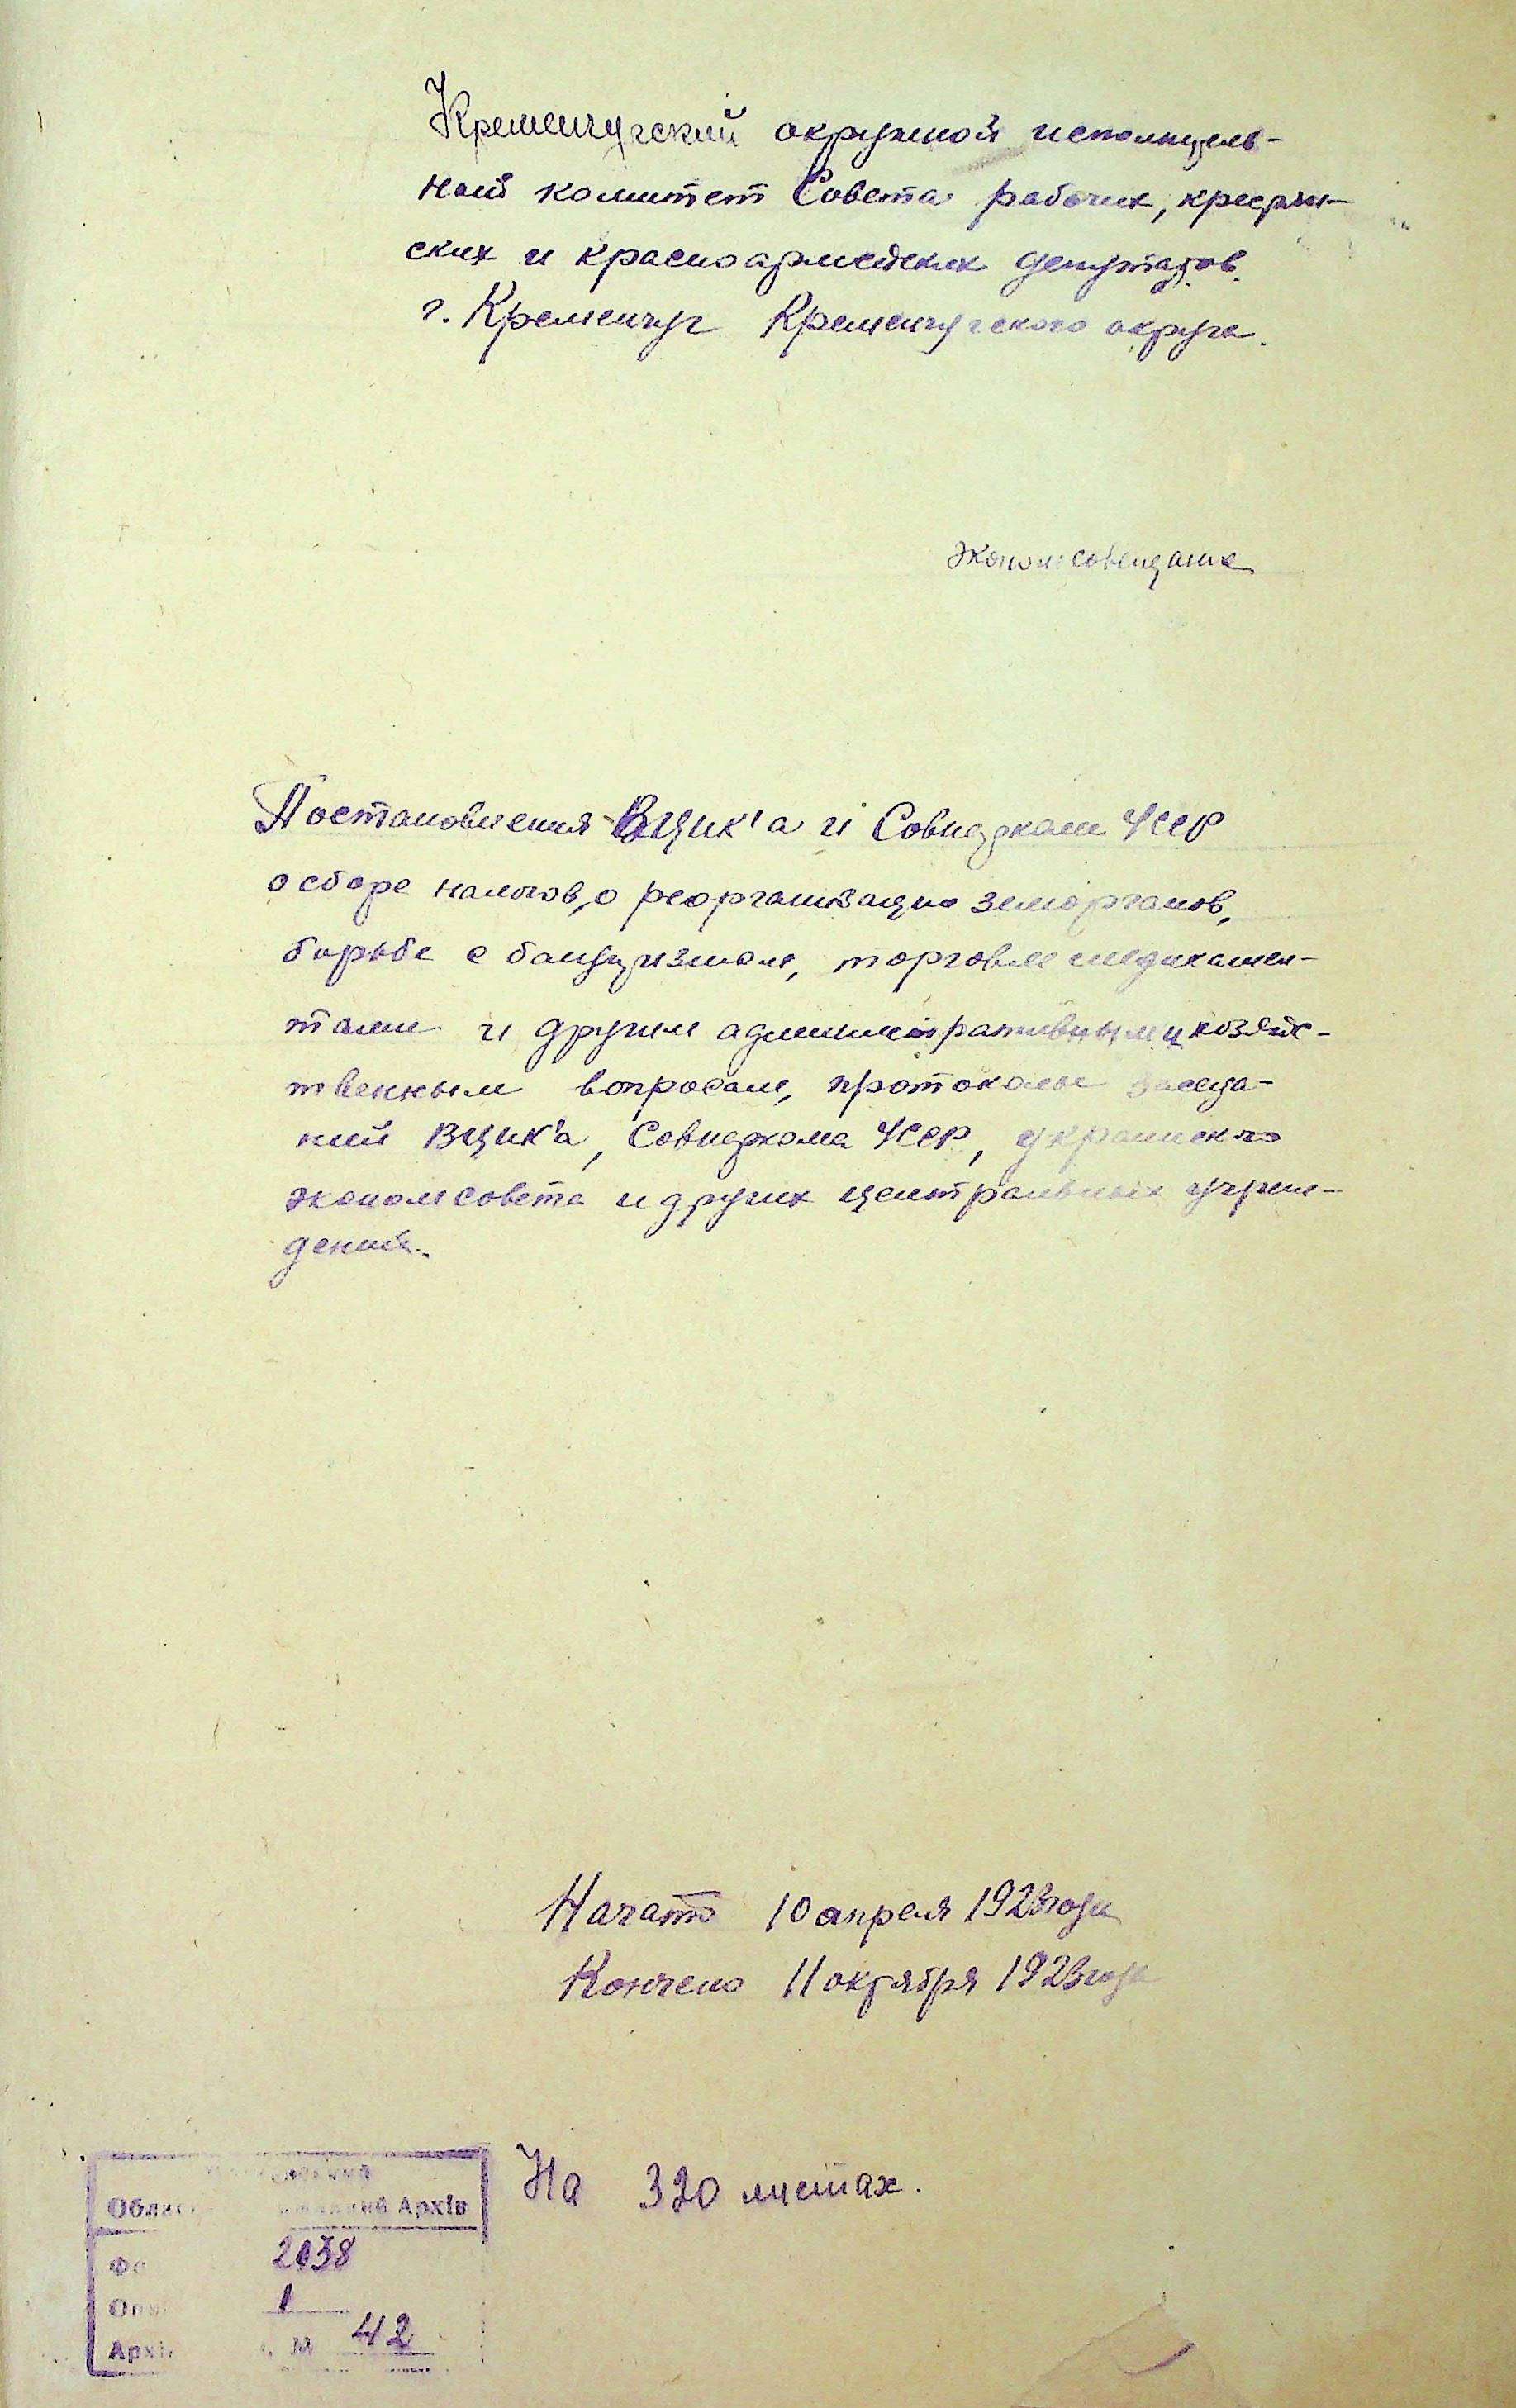 Кременчугский окружной исполнитель-
ный комитет Совета рабочих, крестьян-
ских и красноармейских депутатов.
г. Кременчуг Кременчугского округа.
Экономсовещание
Постановления ВЦИК'а и Совнаркома УССР
о сборе налогов, о реорганизации земорганов,
борьбе с бандитизмом, торговле медикамен-
тами и другим административным и хозяйс-
твенным вопросам, протоколы заседа-
ний ВЦИК'а, Совнаркома УССР, украинского
экономсовета и других центральных учреж-
дений.
Начато 10 апреля 1923 года
Кончено 11 октября 1923 года
На 320 листах.
Архів
2038
1
М 42